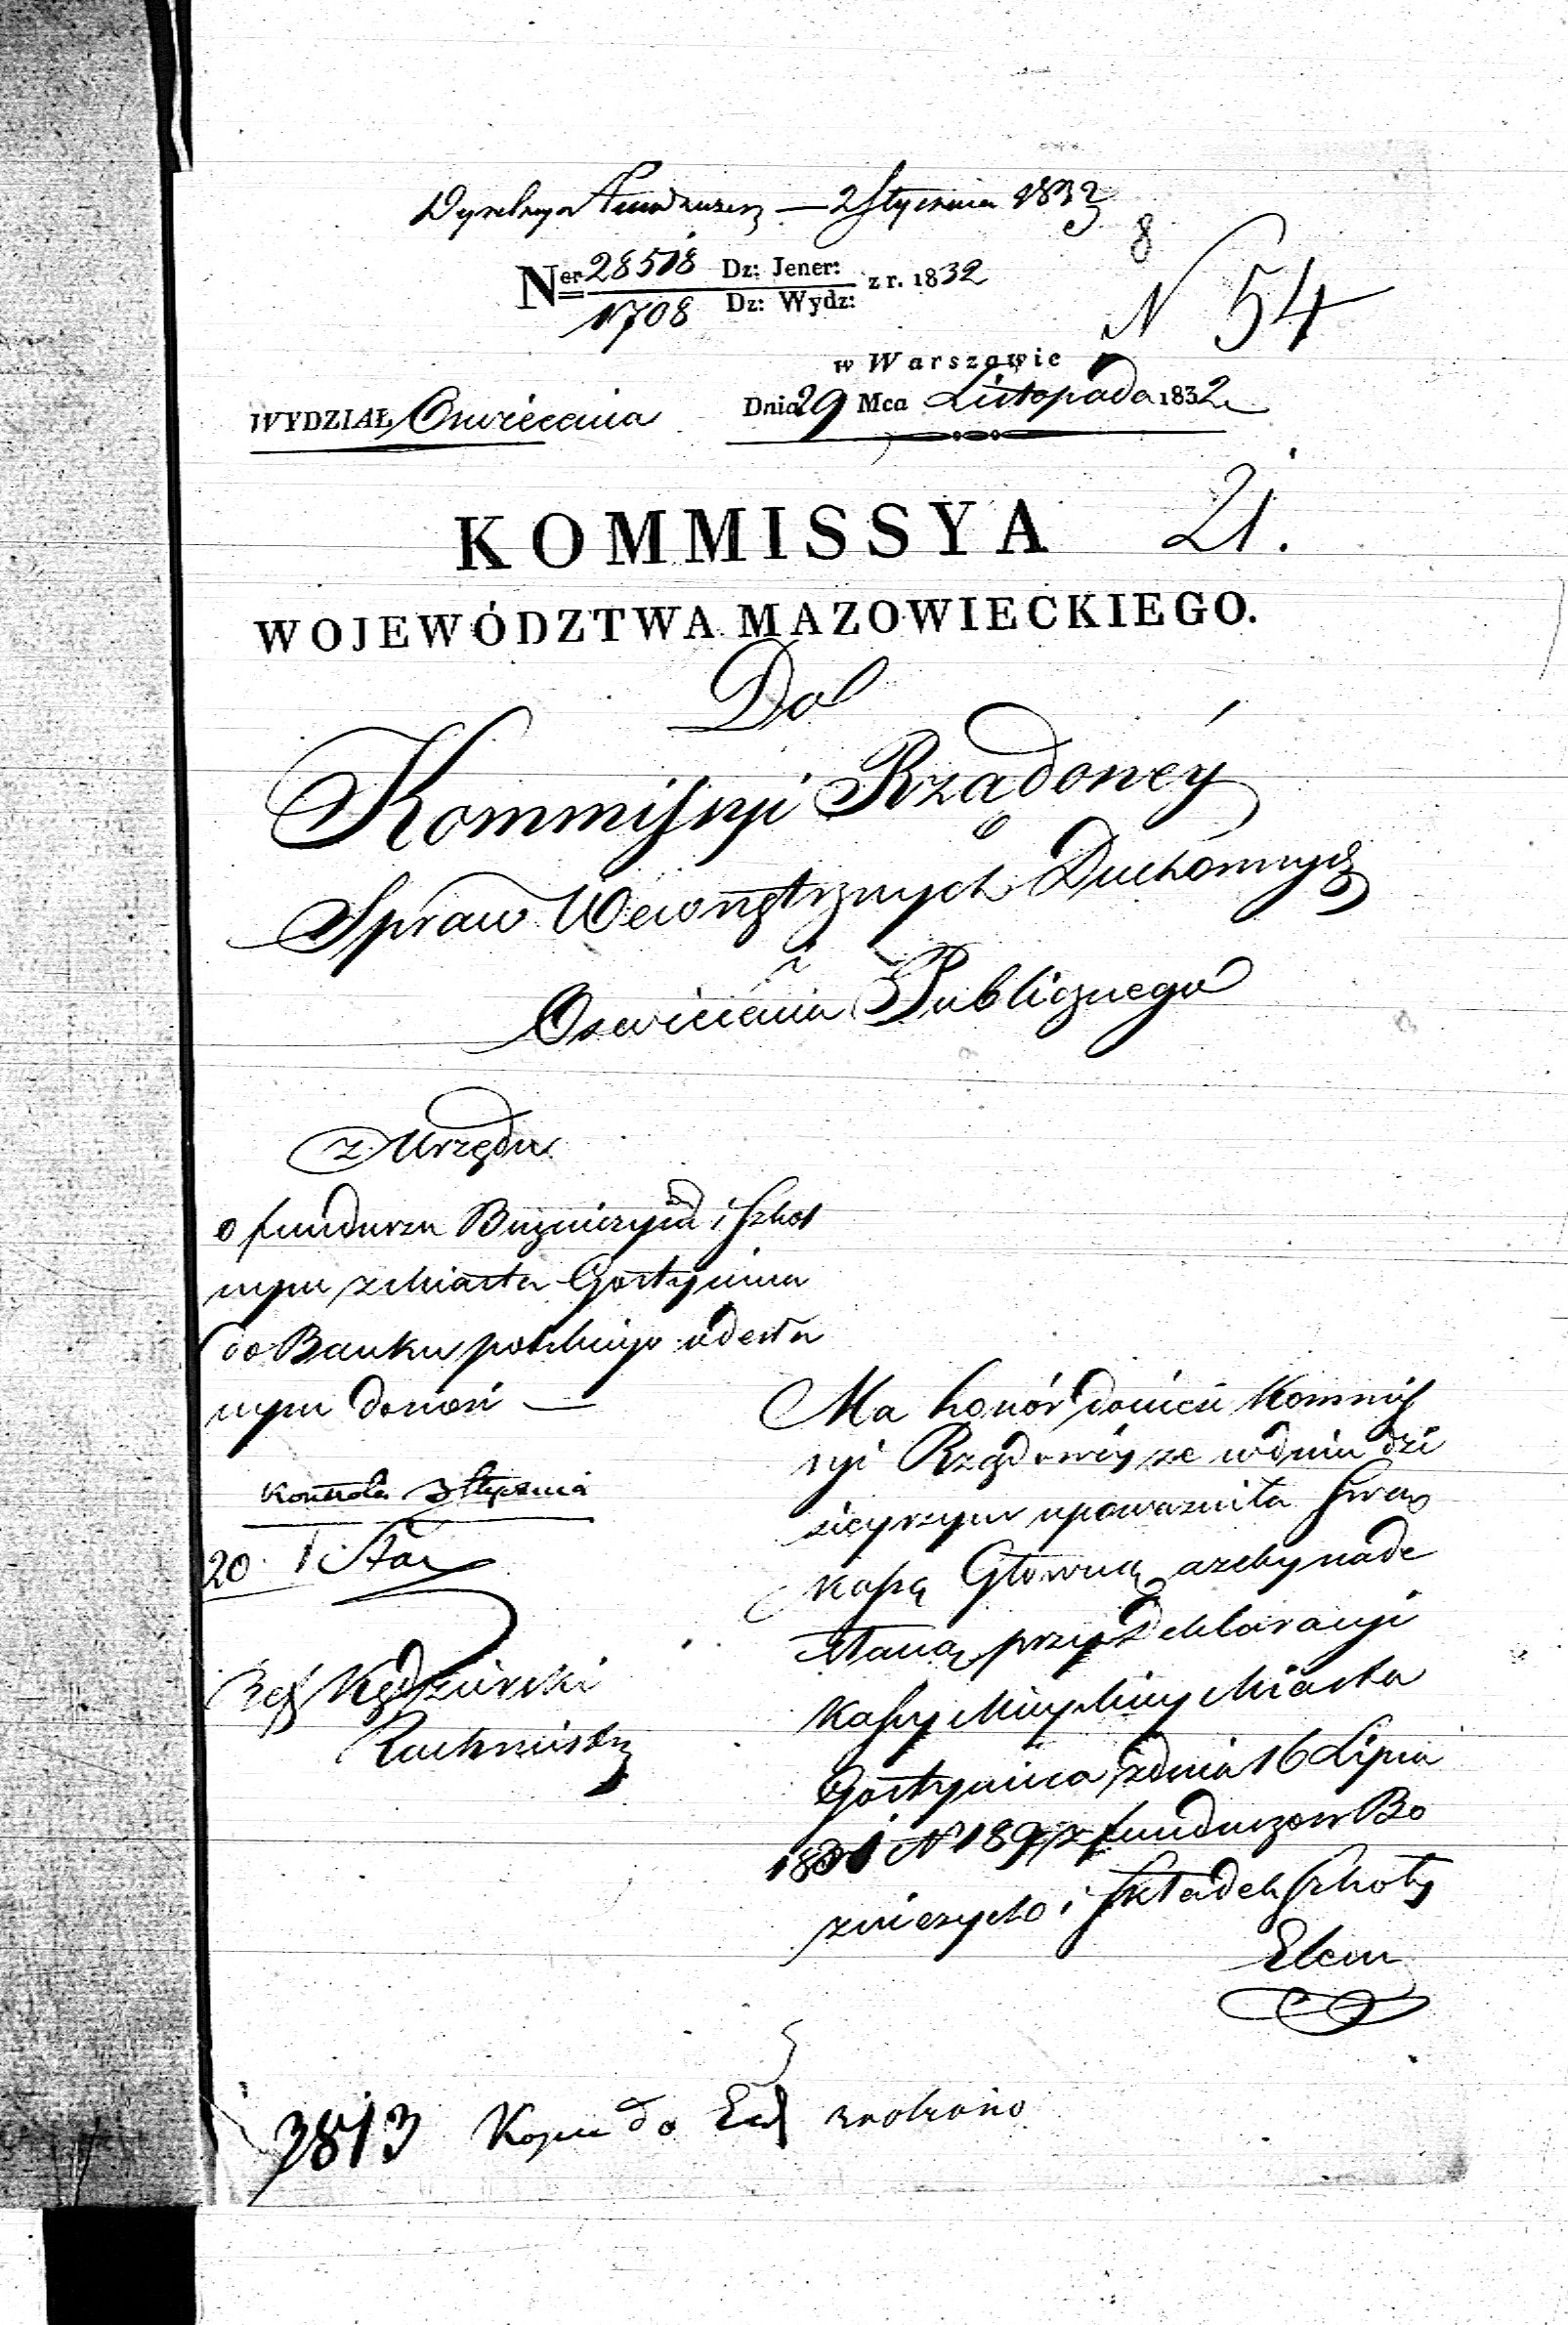 Dyrekcya Funduszu — 2 Stycznia 1833
8
Ner 28518 Dz: Jener: z r. 1832
1708 Dz: Wydz:
N 54
w Warszawie
WYDZIAŁ Oswiecenia Dnia 29 Mca Listopada 1832
21.
KOMMISSYA
WOJEWÓDZTWA MAZOWIECKIEGO.
Do
Kommissyi Rządowéy
Spraw Wewnętrznych Duchownych
i
Oswiecenia Publicznego
z Urzędu
o funduszu Bużniczym i Szkol
nym z Miasta Gostynina
do Banku polskiego odesła
nym donosi —
Kontrola 3 Stycznia
20.
Kędzierski
Rachmistrz
Ma honór donieść Kommis
syi Rządowéy ze w dniu dzi
sieyszym upowazniła swą
Kassę Główną azeby nade
słaną przy Deklaracyi
Kassy Mieyskiey Miasta
Gostynina z dnia 16 Lipca
1831 N 189 z funduszow Bo
zniczych i składek szkoły
Elem
3813 Kopia do zrobiono